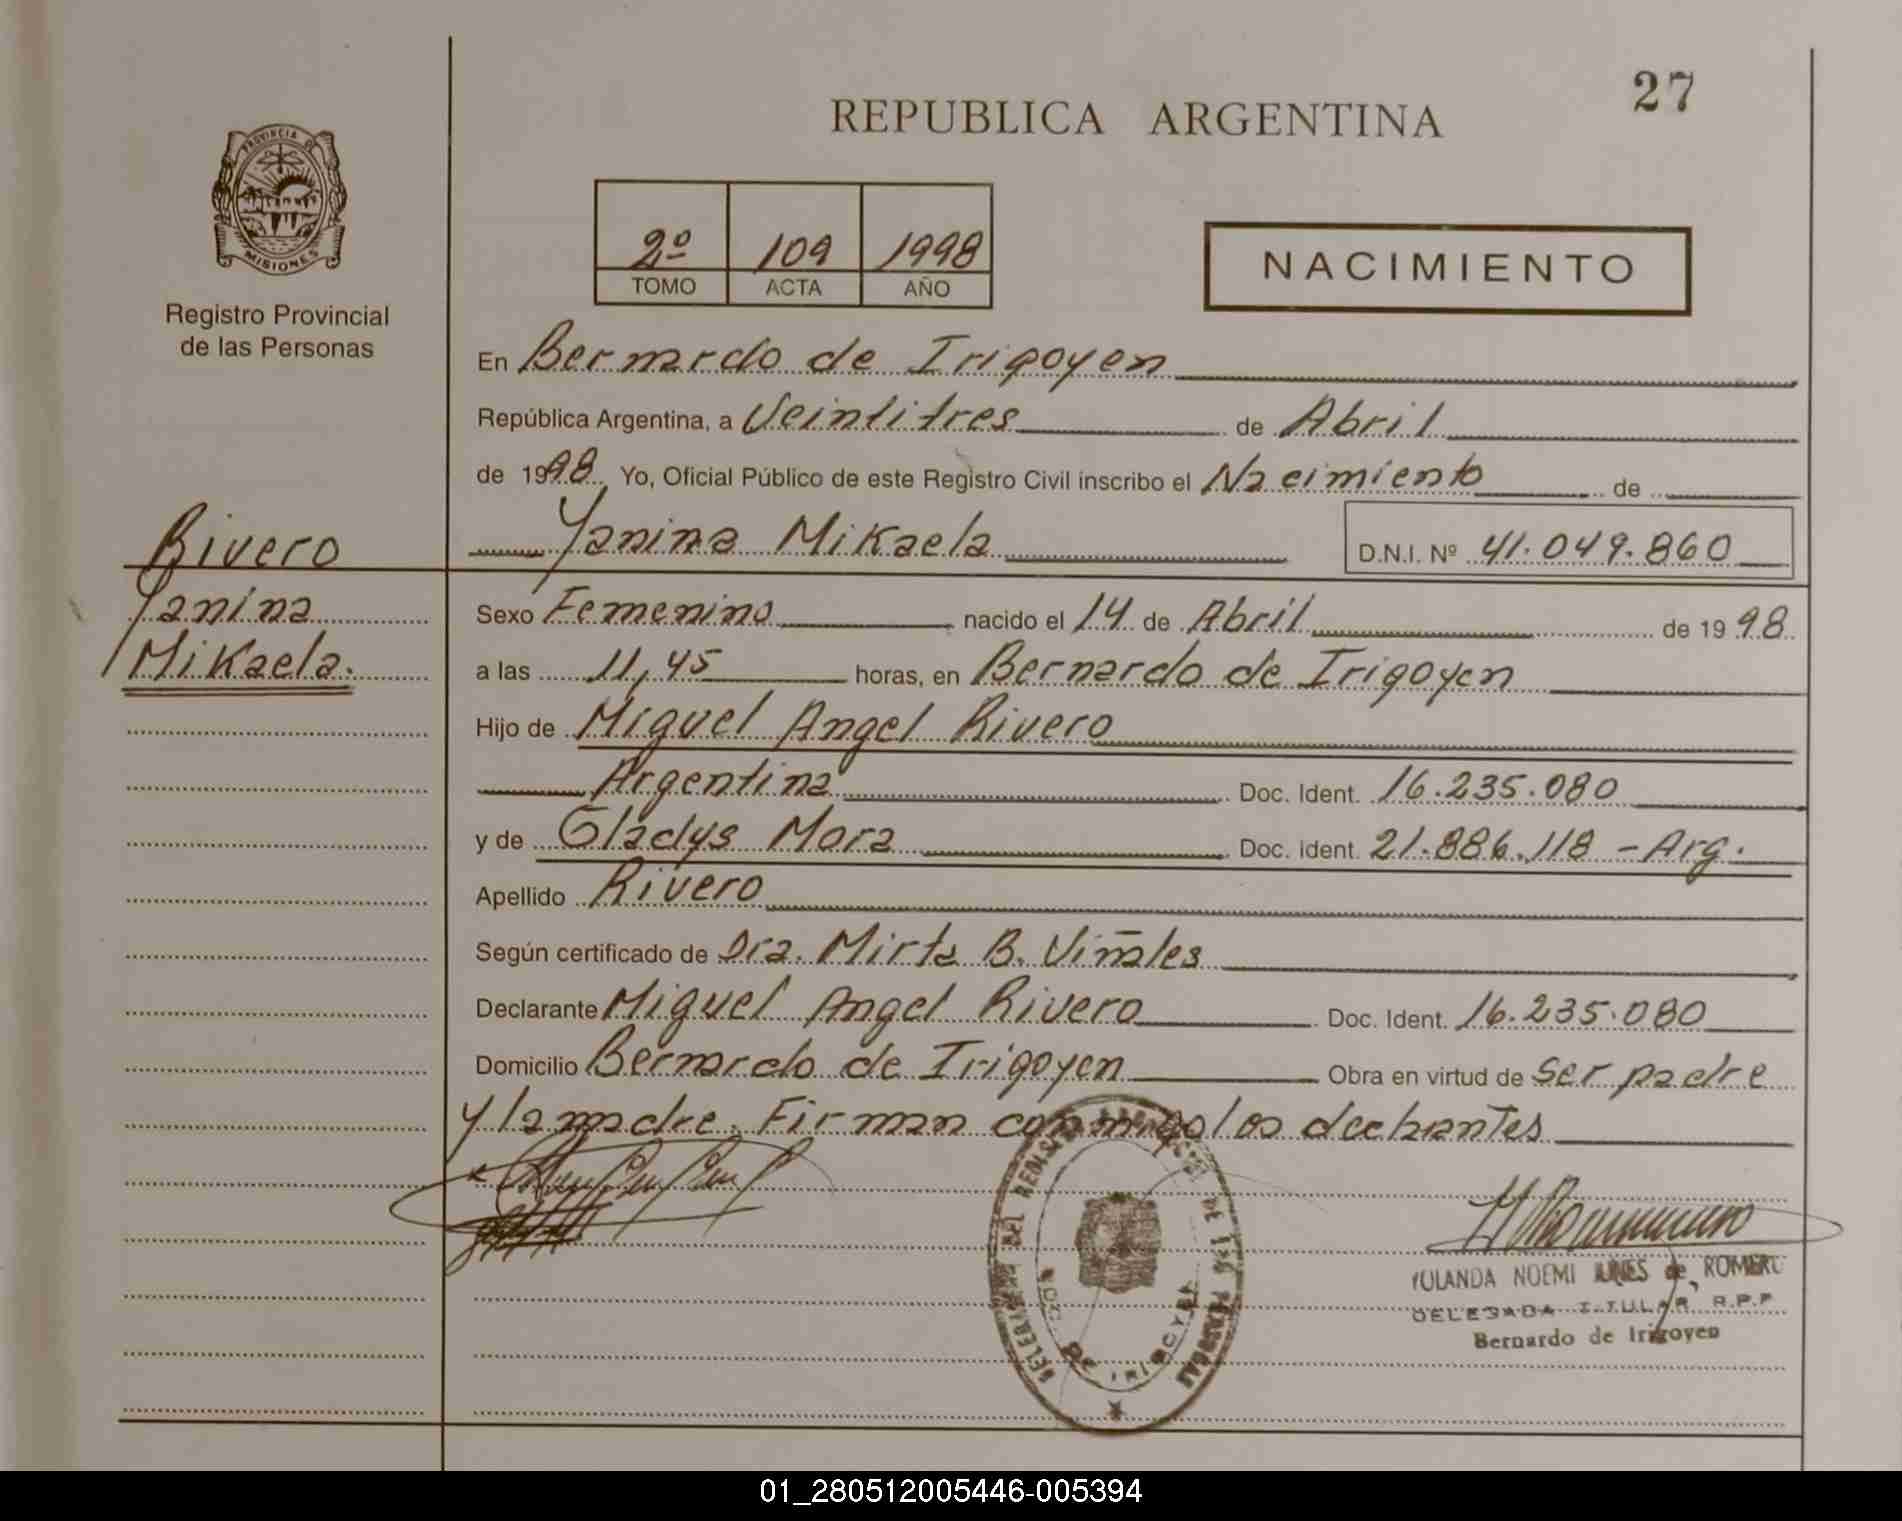 27
REPUBLICA ARGENTINA
PROVINCIA DE
MISIONES
Registro Provincial
de las Personas
2º 109 1998
TOMO ACTA AÑO
NACIMIENTO
En Bernardo de Irigoyen
República Argentina, a Veintitres de Abril
de 1998 Yo, Oficial Público de este Registro Civil inscribo el Nacimiento de
Yanina Mikaela D.N.I. Nº 41.049.860
Rivero
Yanina
Mikaela.
Sexo Femenino nacido el 14 de Abril de 1998
a las 11,45 horas, en Bernardo de Irigoyen
Hijo de Miguel Angel Rivero
Argentina Doc. Ident. 16.235.080
y de Gladys Mora Doc. ident. 21.886.118 - Arg.
Apellido Rivero
Según certificado de Dra. Mirta B. Viñales
Declarante Miguel Angel Rivero Doc. Ident. 16.235.080
Domicilio Bernardo de Irigoyen Obra en virtud de ser padre
y la madre. Firman conmigo los declarantes
YOLANDA NOEMI de ROMERO
DELEGADA TITULAR R.P.P.
Bernardo de Irigoyen
DEL DE LAS PERSONAS
DE IRIGOYEN
01_280512005446-005394